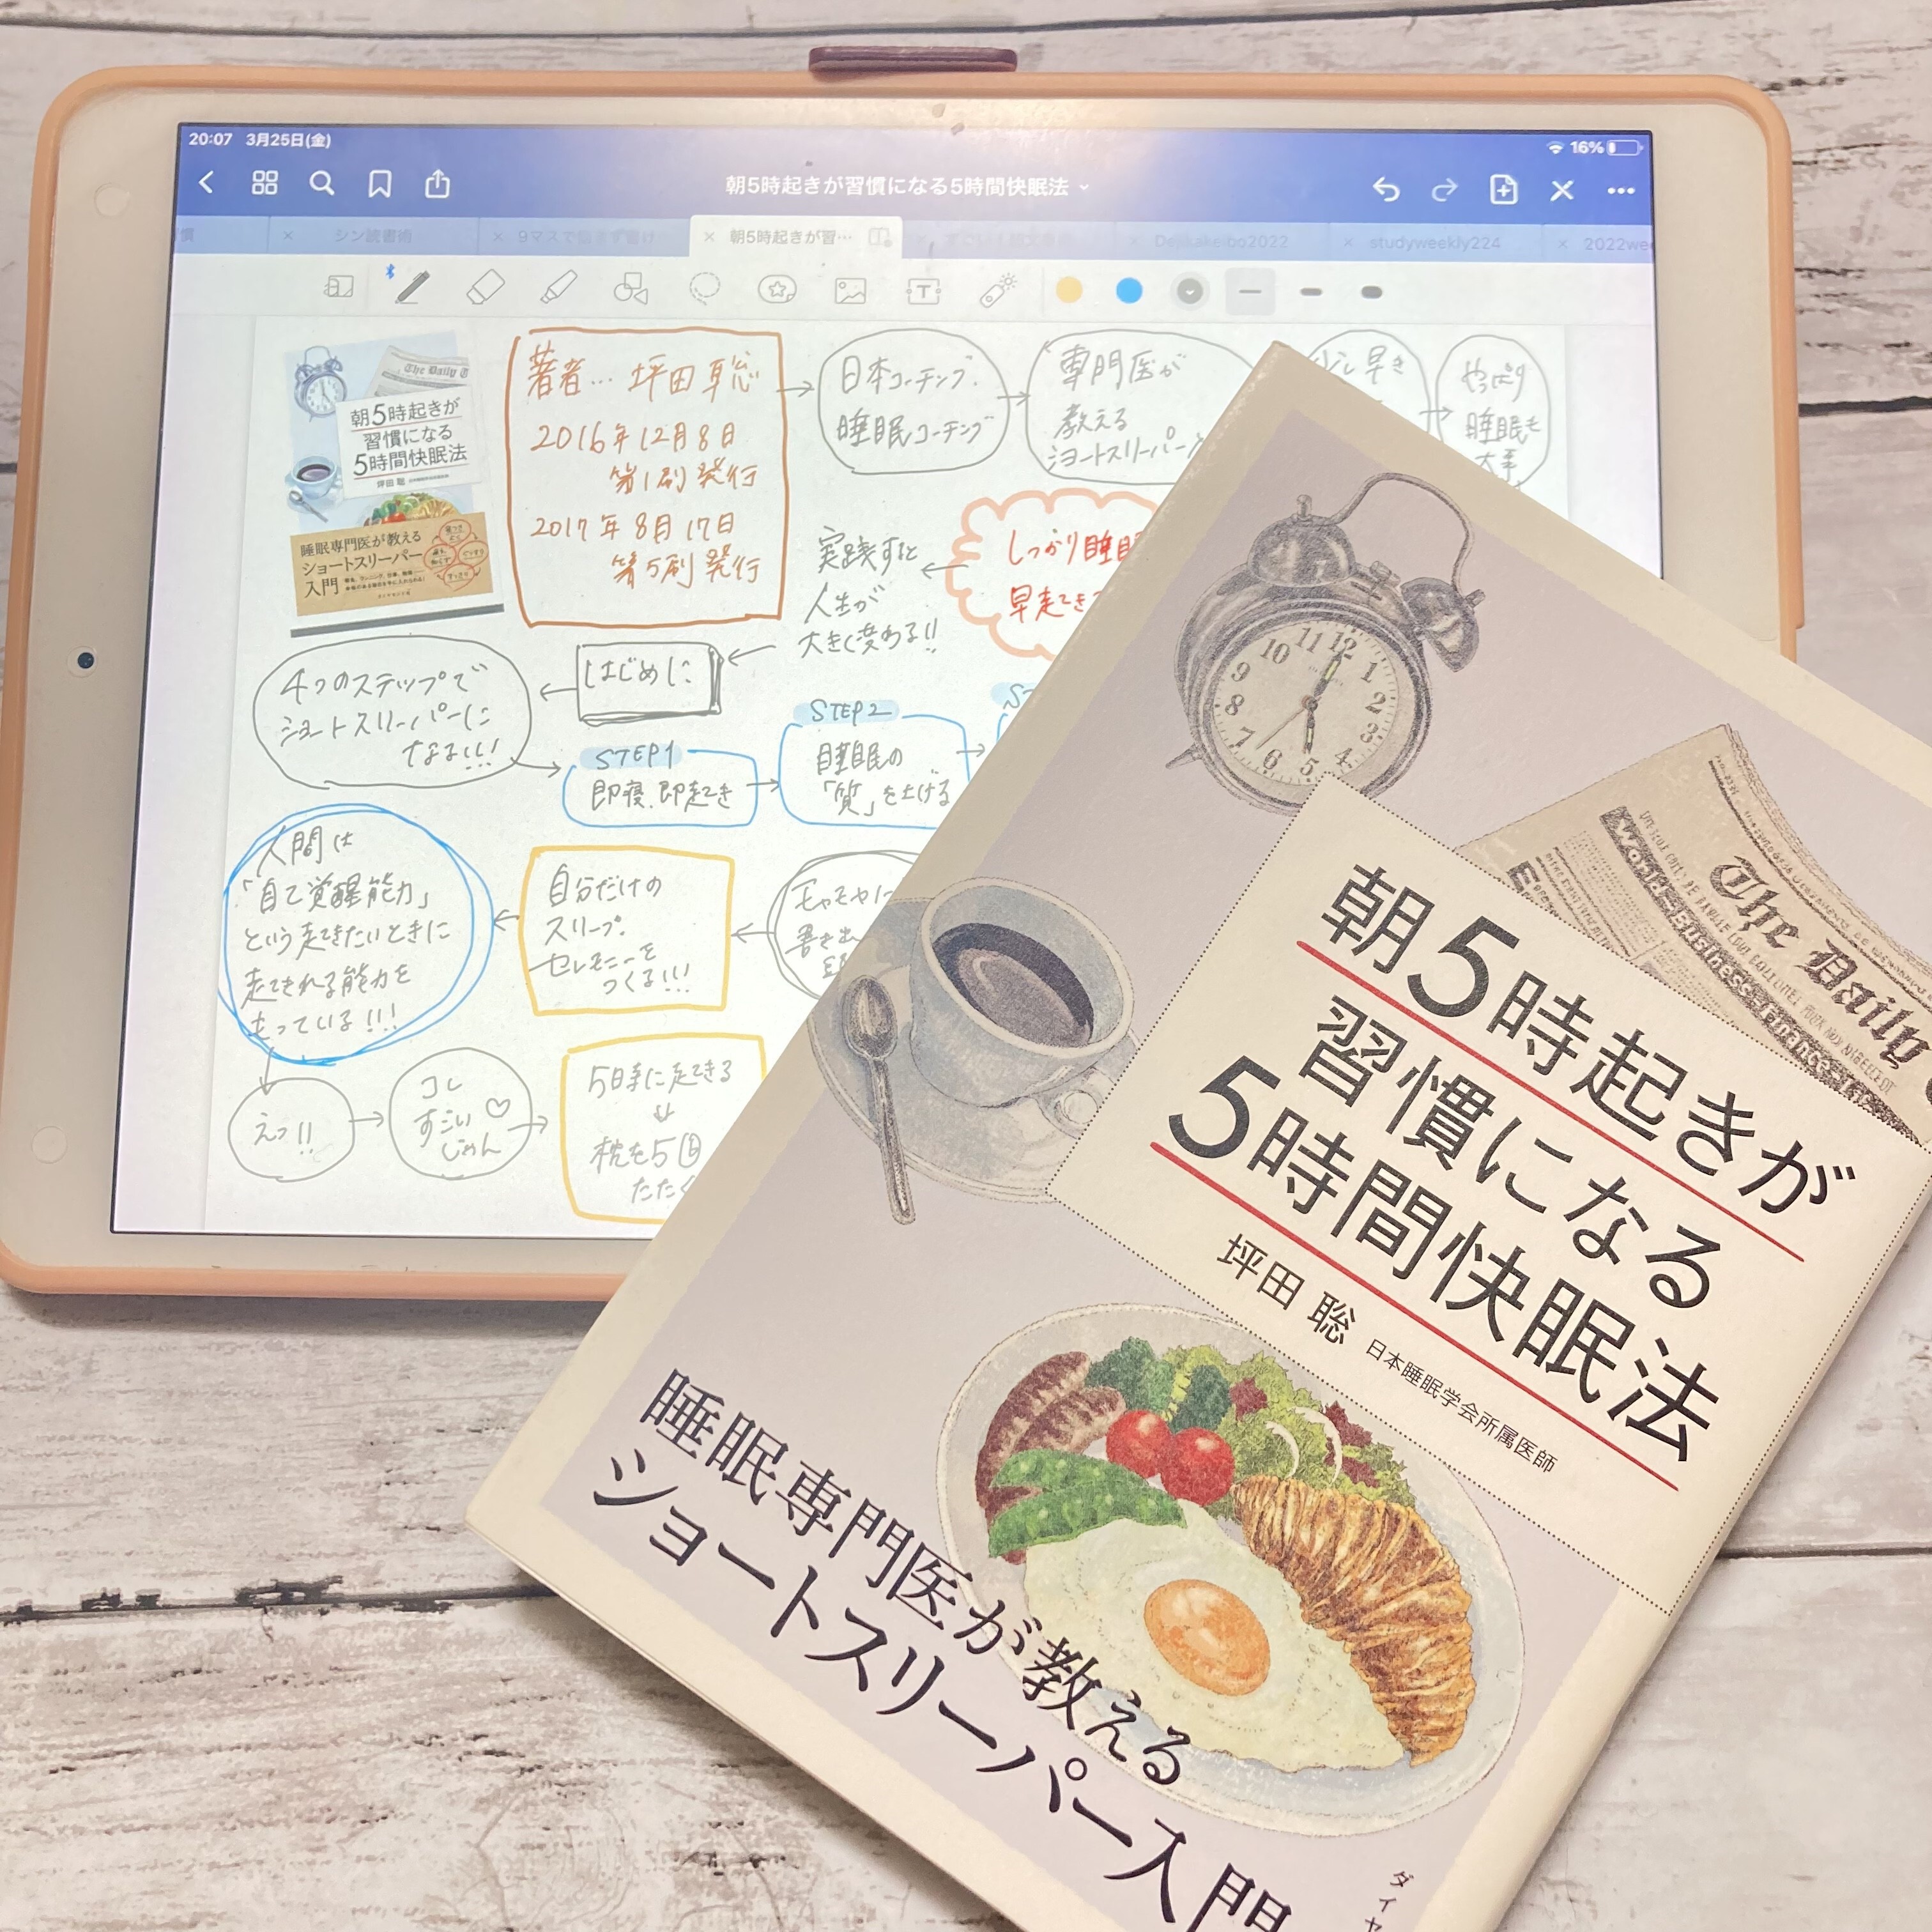 20:07 3月25日(金)
16%
朝5時起きが習慣になる5時間快眠法
慣
シン読書術
9マスで
朝5時起きが習…
Dejikakeibo2022
studyweekly224
2022wee
The Daily T
朝5時起きが
習慣になる
5時間快眠法
坪田 聡
睡眠専門医が教える
ショートスリーパー
入門
著者… 坪田 聡
2016年12月8日
第1刷発行
2017年8月17日
第5刷発行
日本コーチング.
睡眠コーチング
専門医が
教える
ショートスリーパー
少し早き
やっぱり
睡眠も
大事
しっかり睡眠
早起きで
実践すと
人生が
大きく変わる!!
はじめに
4つのステップで
ショートスリーパーに
なる!!!
STEP1
即寝、即起き
STEP2
睡眠の
「質」を上げる
ST
人間は
「自己覚醒能力」
という起きたいときに
起きれる能力を
もっている!!!
自分だけの
スリープ.
セレモニーを
つくる!!!
モヤモヤに
書き出
えっ!!
コレ
すごい♡
じゃん
5時に起きる
↓
枕を5回
たたく
12
1
2
3
4
5
6
7
8
9
10
11
The Daily
World-Business-Finance
朝5時起きが
習慣になる
5時間快眠法
坪田 聡 日本睡眠学会所属医師
睡眠専門医が教える
ショートスリーパー入門
ダイヤ